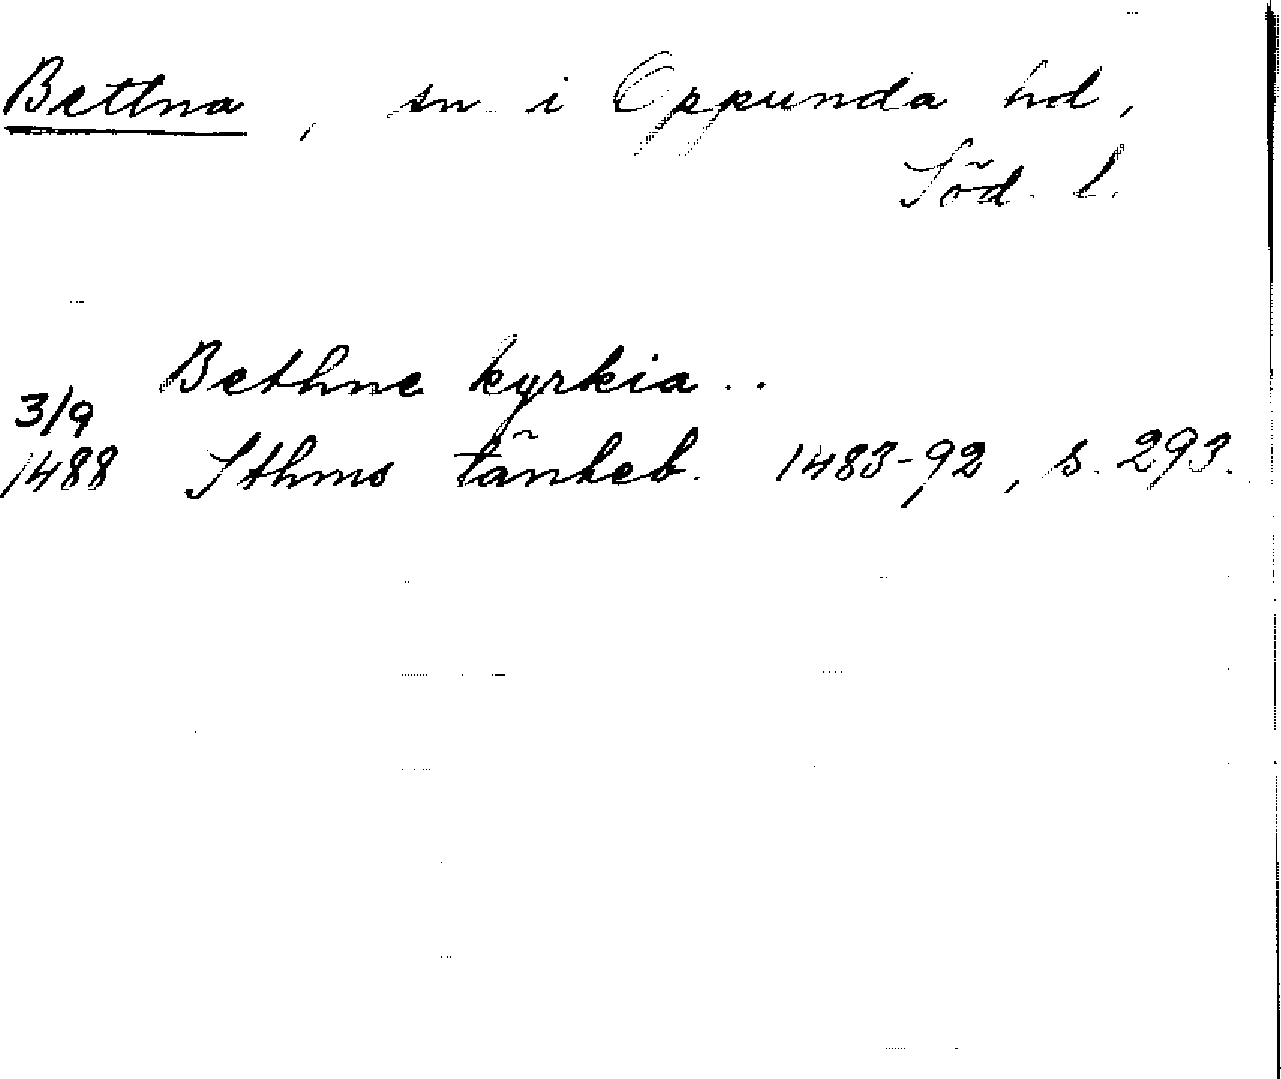 Bettna, sn i Oppunda hd,
Söd. l.
Bethne kyrkia..
3/9
1488 Sthms tänkeb. 1483-92, s. 293.